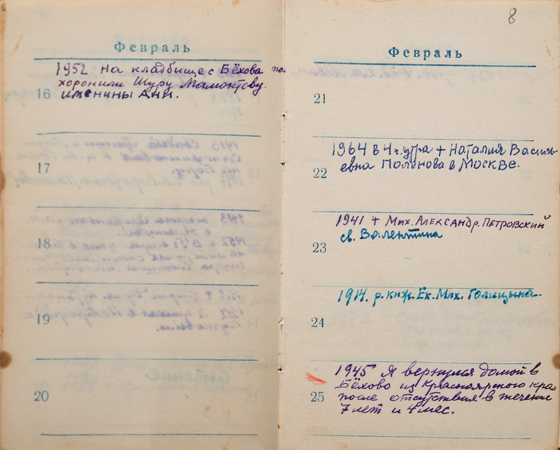 Февраль
1952 На кладбище с Бёхова по-
хоронили Шуру Мамонтову.
16
именины Анн.
17
18
19
20
8
Февраль
21
1964 в 4 ч. утра + Наталия Василь
22
евна Поленова в Москве.
1941 + Мих. Александр. Петровский
св. Валентина
23
1914. р. княж. Ек. Мих. Голицына
24
1945 Я вернулся домой в
Бёхово из Красноярского края
25
после отсутствия в течение
7 лет и 4 мес.